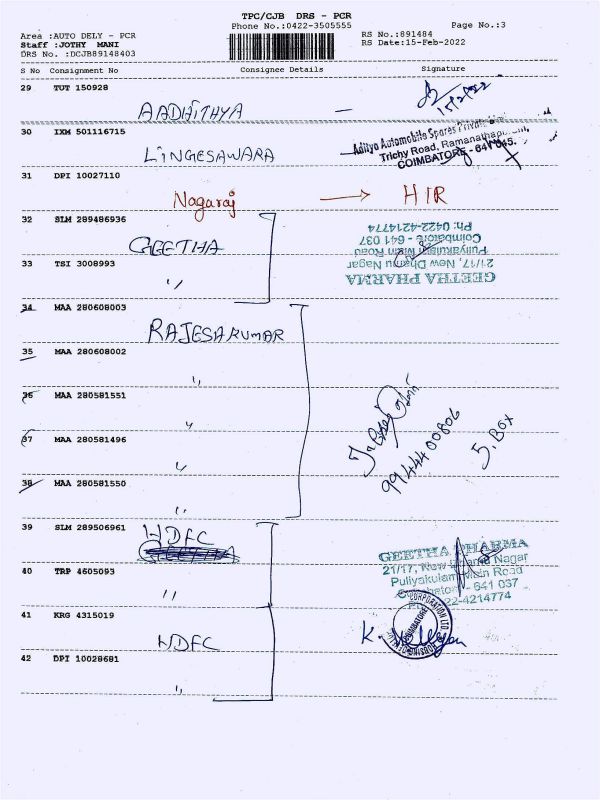 TPC/CJB DRS - PCR
Phone No.:0422-3505555
Page No.:3
Area :AUTO DELY - PCR
Staff :JOTHY MANI
DRS No. :DCJB89148403
RS No.:891484
RS Date:15-Feb-2022
S No Consignment No Consignee Details Signature
29 TUT 150928
AADHITHYA —
30 IXM 501116715
LINGESAWARA
Aditya Automobile Spares Private Limi
Trichy Road, Ramanathapuram,
COIMBATORE - 641 045.
31 DPI 10027110
Nagaraj → HIR
32 SLM 289486936
GEETHA
33 TSI 3008993
〃
GEETHA PHARMA
21/17, New Dhamu Nagar
Puliyakulam Main Road
Coimbatore - 641 037
Ph: 0422-4214774
34 MAA 280608003
RAJESAKUMAR
35 MAA 280608002
〃
36 MAA 280581551
〃
37 MAA 280581496
〃
38 MAA 280581550
〃
9944400806
5. Box
39 SLM 289506961
HDFC
GEETHA
40 TRP 4605093
〃
GEETHA PHARMA
21/17, New Dhamu Nagar
Puliyakulam Main Road
Coimbatore - 641 037
22-4214774
41 KRG 4315019
HDFC
42 DPI 10028681
〃
CORPORATION LTD
COIMBATORE